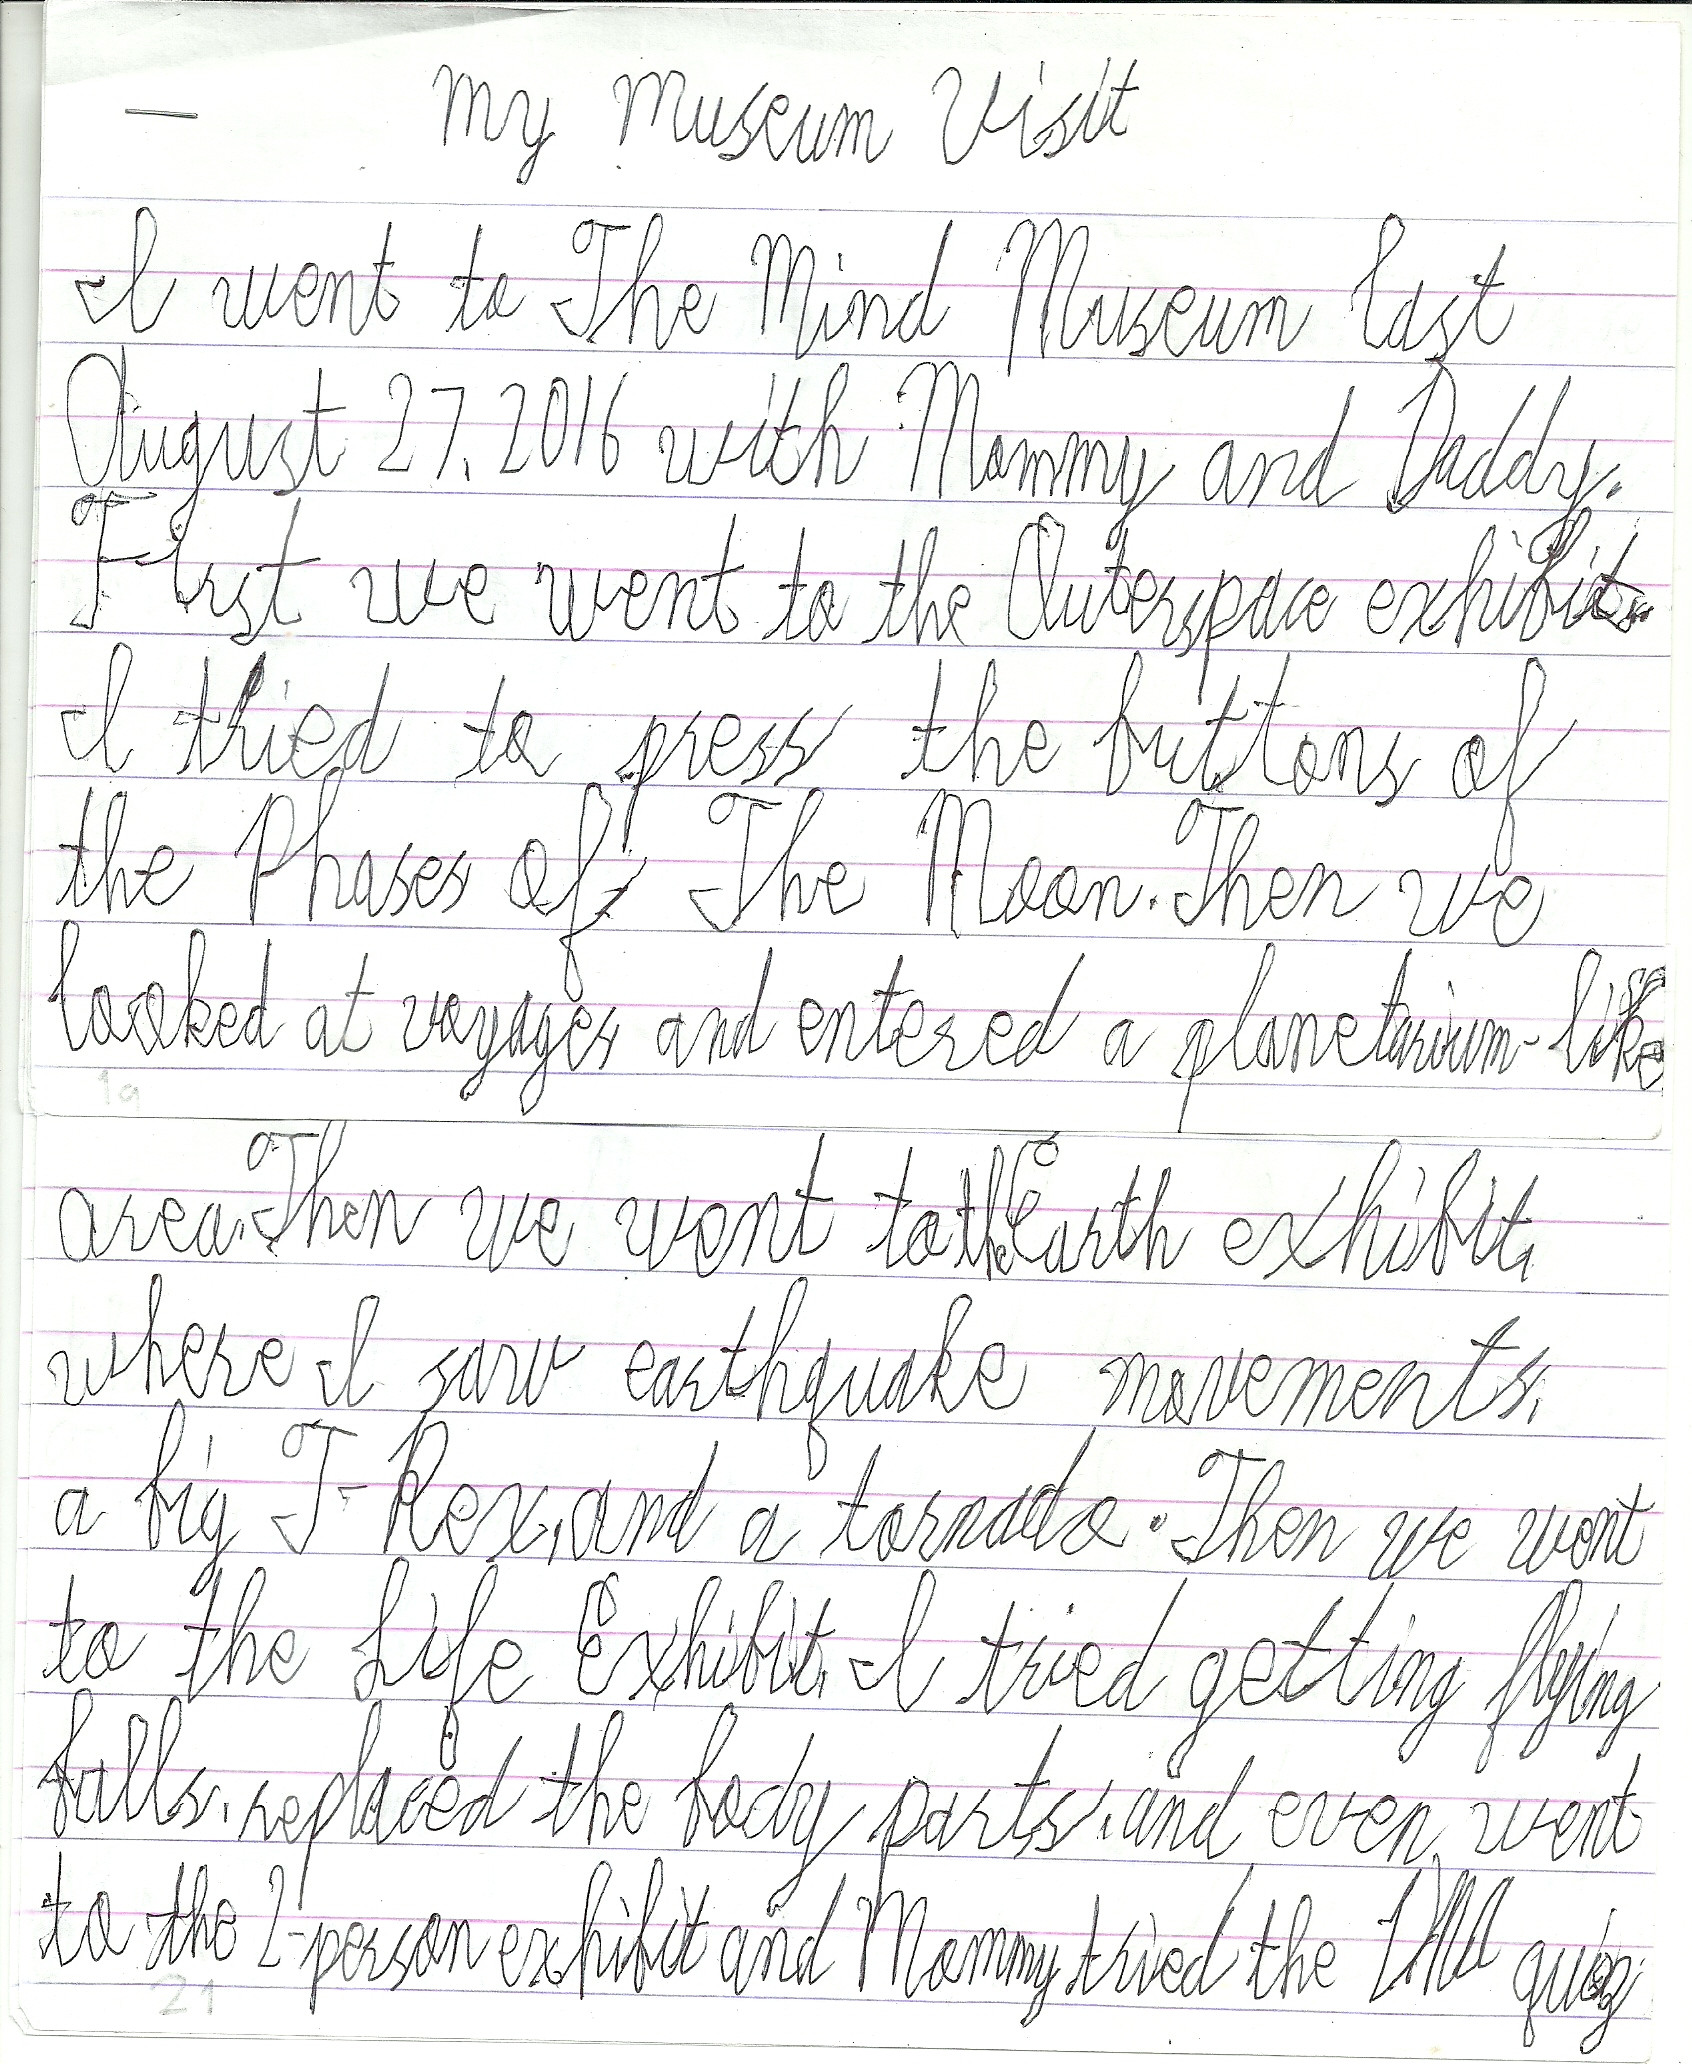 My Museum Visit
I went to The Mind Museum last
August 27, 2016 with Mommy and Daddy.
First we went to the Outerspace exhibit.
I tried to press the buttons of
the Phases of The Moon. Then we
looked at voyages and entered a planetarium-like
19
area. Then we went to the Earth exhibit,
where I saw earthquake movements,
a big T-Rex, and a tornado. Then we went
to the Life Exhibit, I tried getting flying
balls, replaced the body parts, and even went
to the 2-person exhibit and Mommy tried the DNA quiz
21